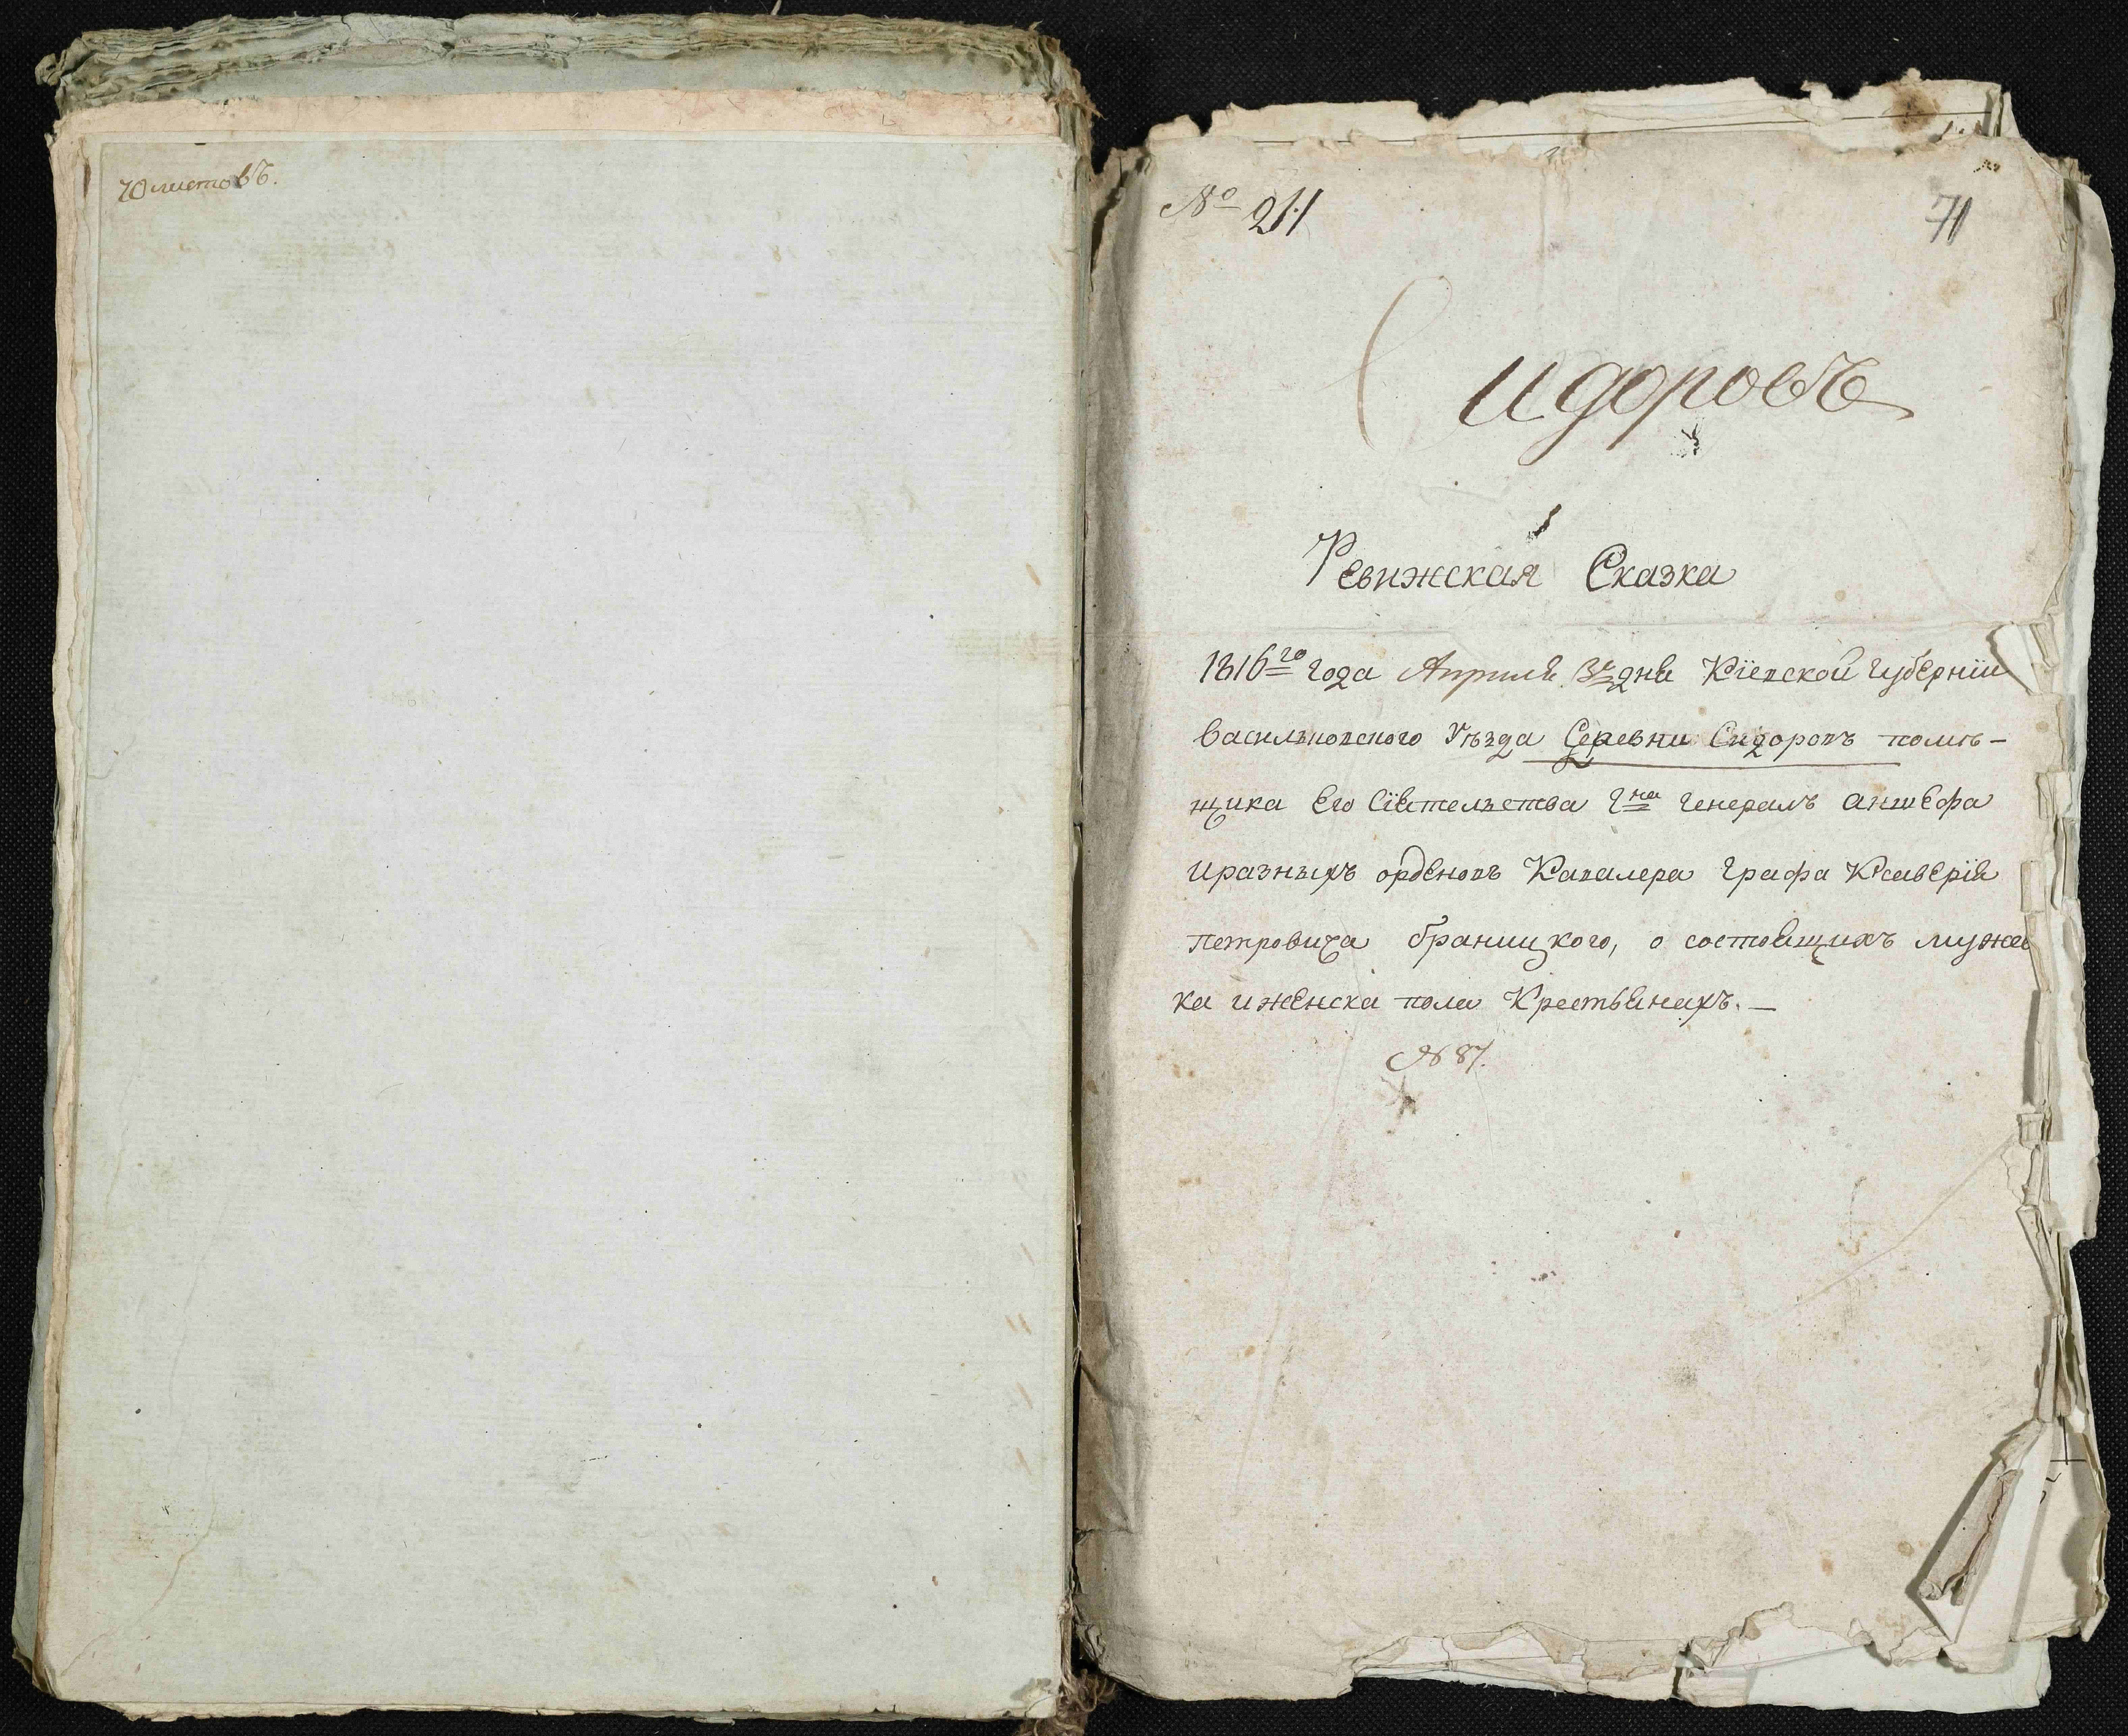 70 листовъ.
№ 211
71
Сидоровъ
Ревижская Сказка
1816го года Апреля дня Кіевской Губерніи
Васильковскаго Уѣзда Деревни Сидоровъ помѣ-
щика Его Сіятельства Гна Генералъ аншефа
и разныхъ орденовъ Кавалера Графа Ксаверія
Петровича Браницкого, о состоящихъ мужес
ка и женска пола Крестьянахъ. —
№ 87.